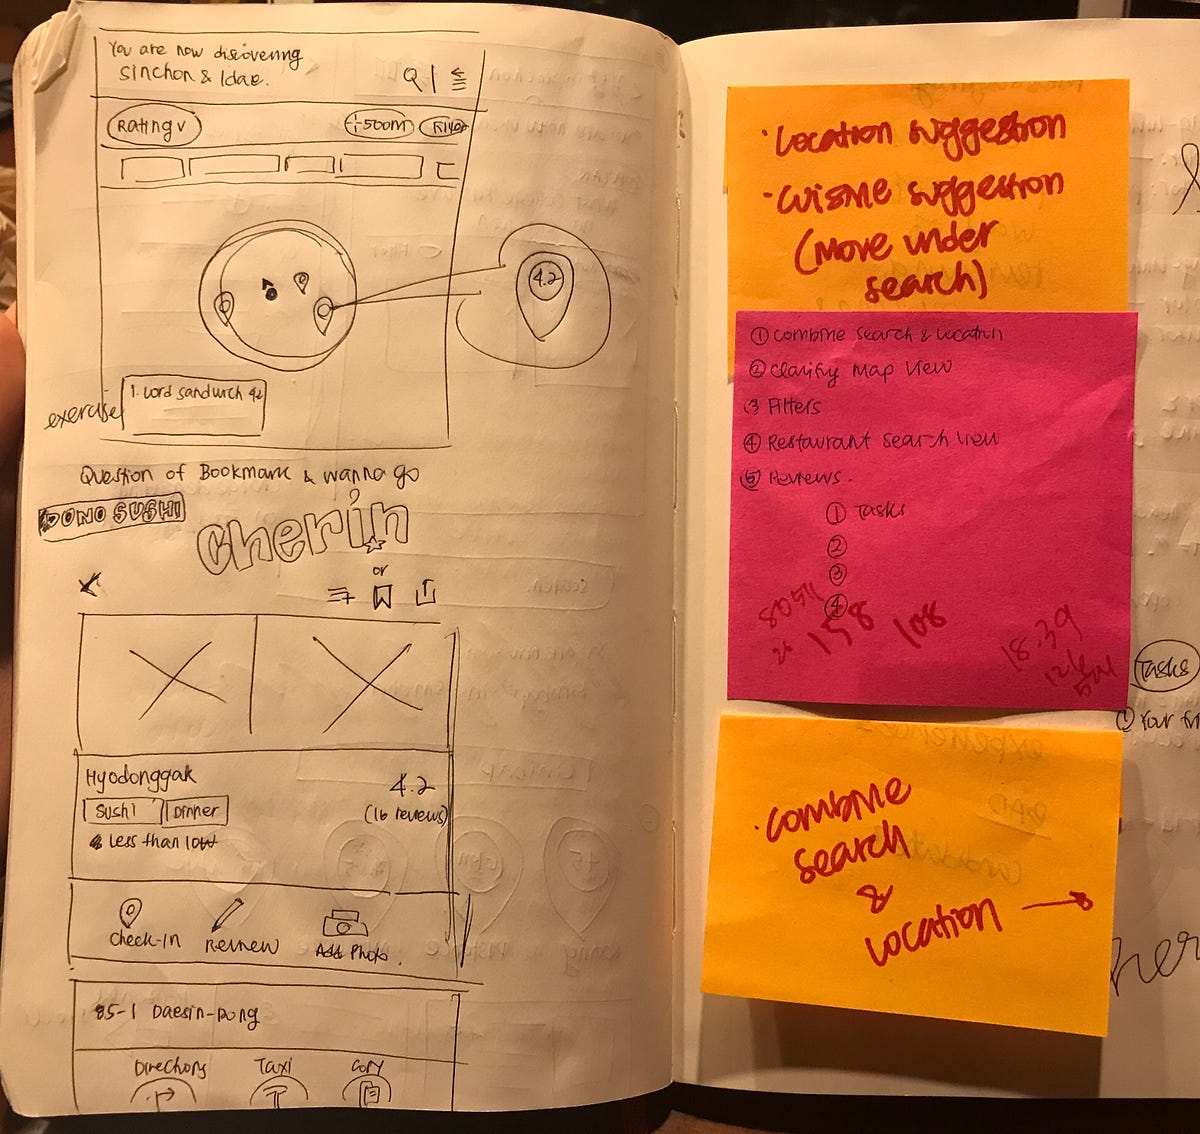 You are now discovering
Sinchon & Idae.
Rating v
500m
Filter
4.2
1. Lord Sandwich 4.2
exercise
Question of Bookmark & wanna go
PONO SUSHI
cherin
or
Hyodonggak
4.2
Sushi Dinner
(16 reviews)
Less than 10₩
Check-In Review Add Photo.
85-1 Daesin-Dong
Directions Taxi Copy
· Location suggestion
· Cuisine suggestion
(Move under
search)
① Combine Search & Location
② Clarify Map View
③ Filters
④ Restaurant Search View
⑤ Reviews.
① Tasks
②
③
④
158 108
18.39
· Combine
search
&
Location →
Tasks
① Your